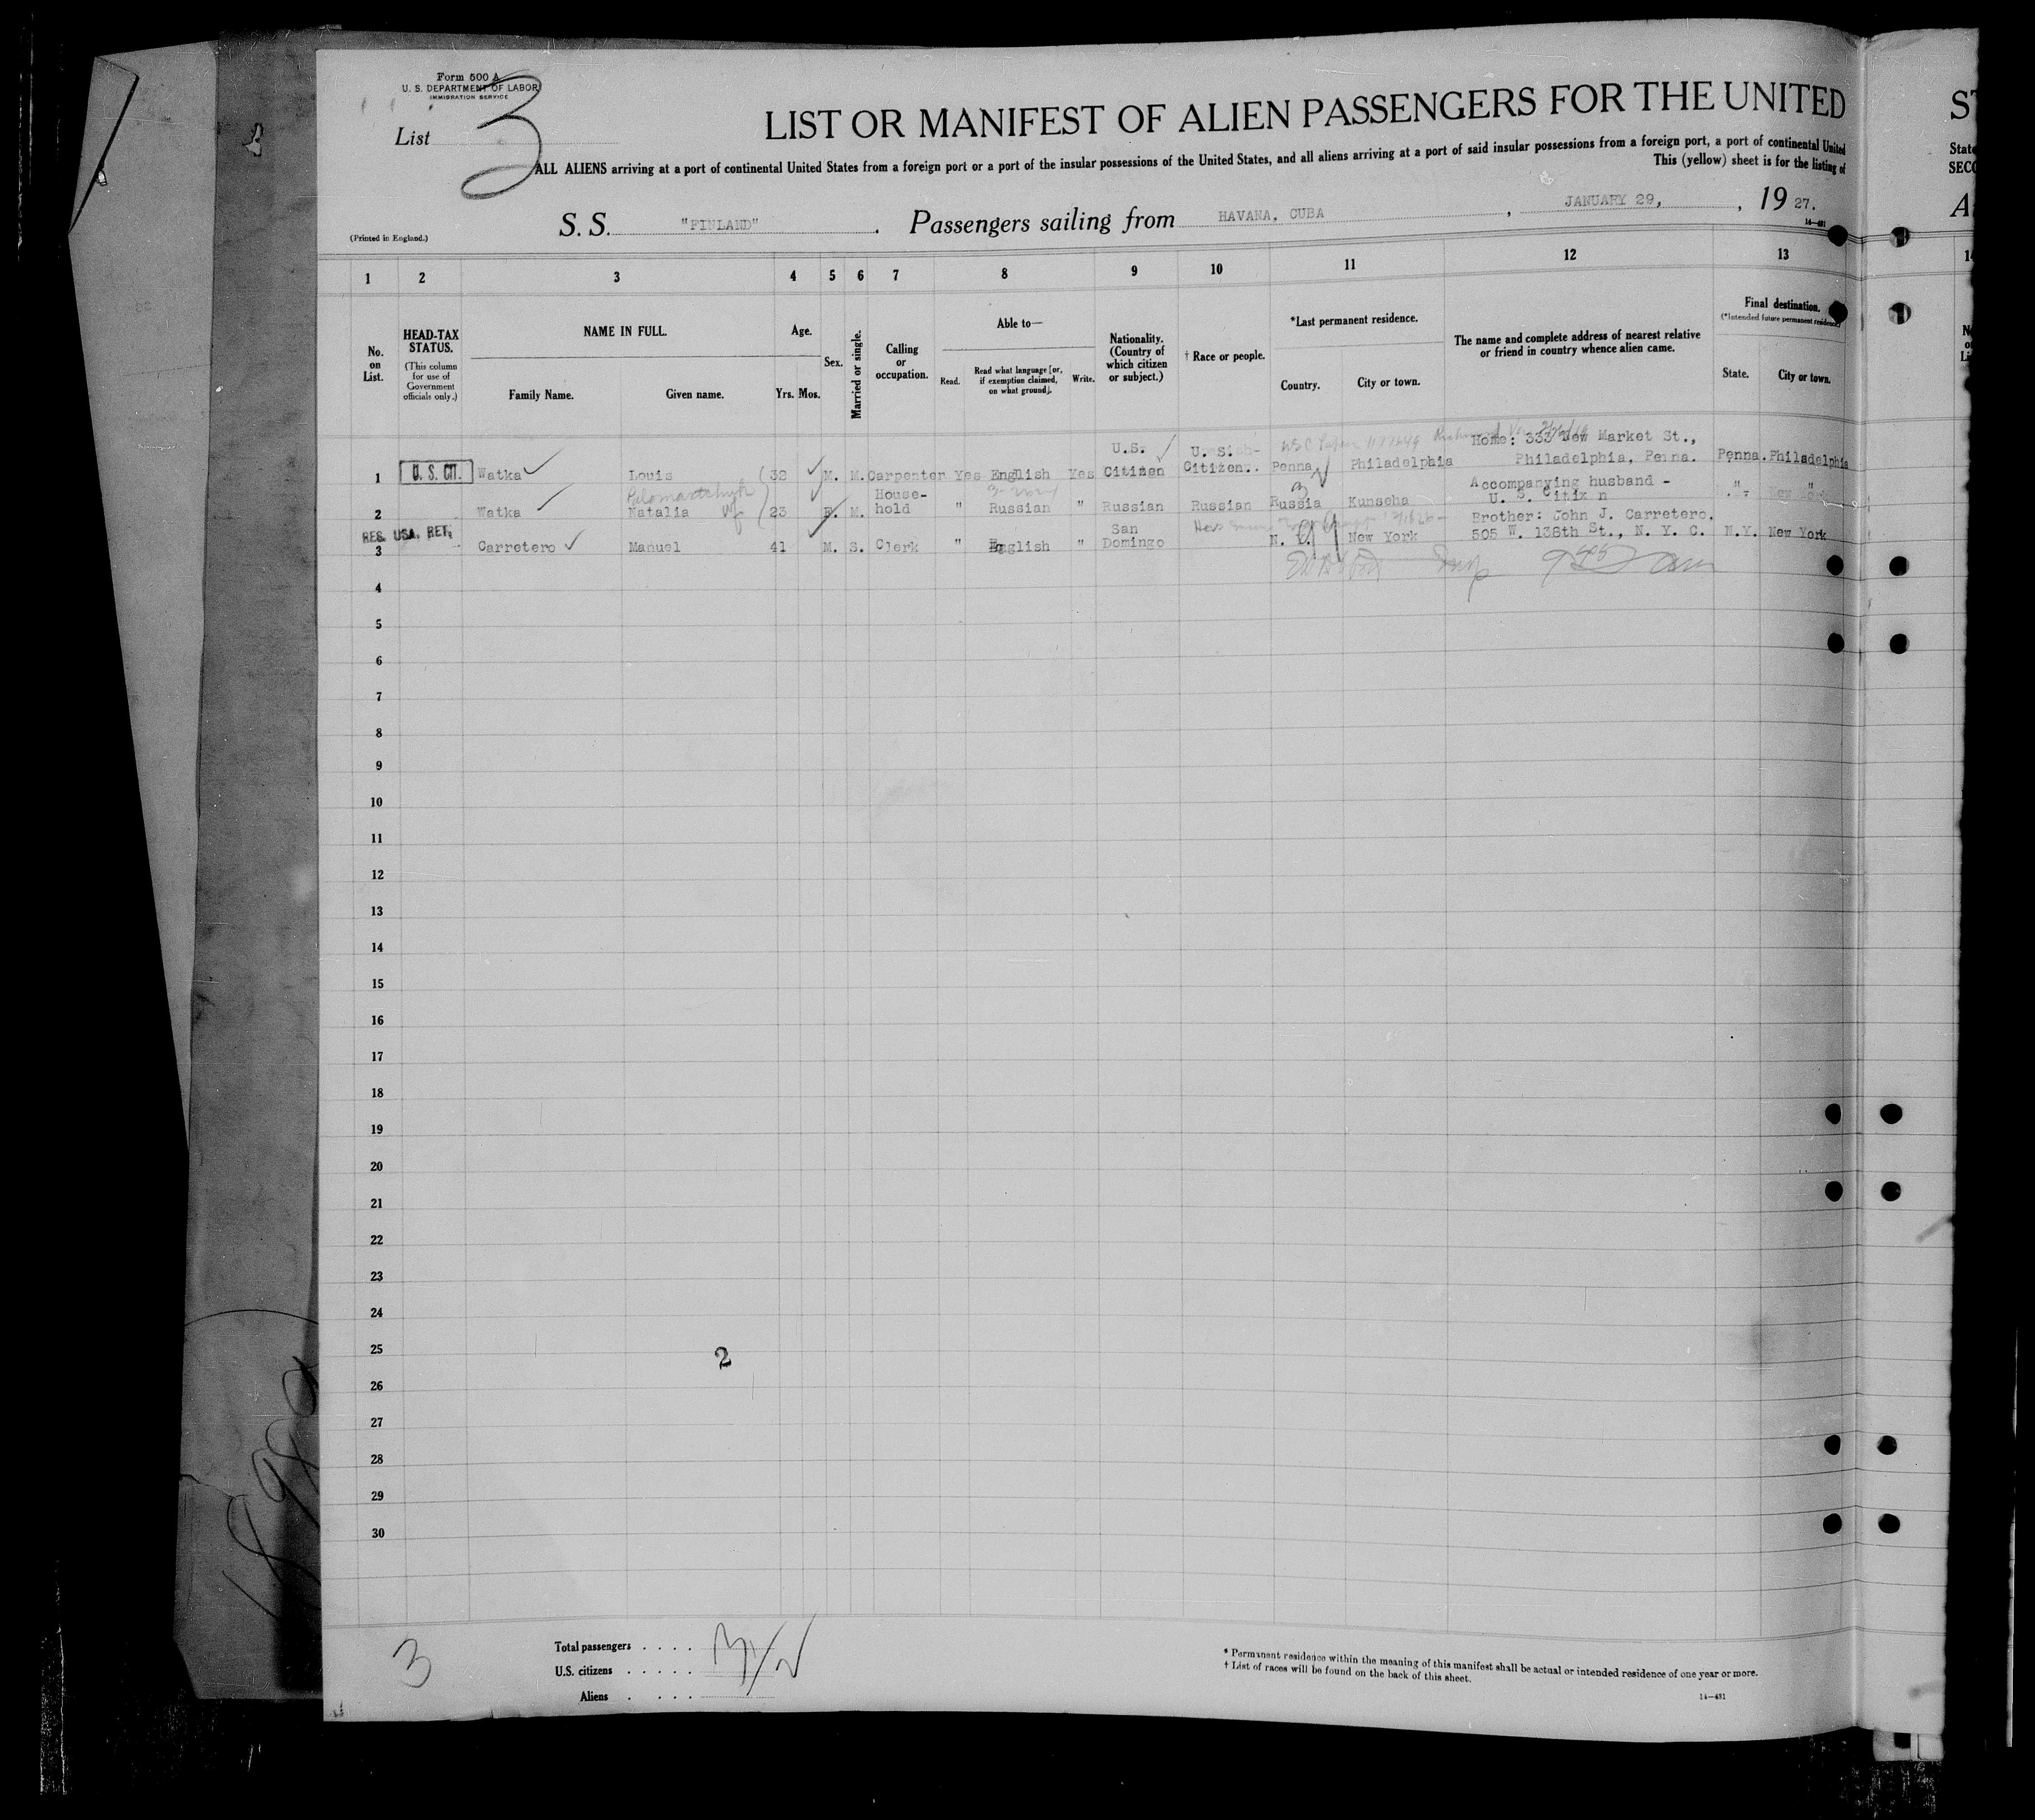 Form 500 A
U. S. DEPARTMENT OF LABOR
IMMIGRATION SERVICE
List 3
LIST OR MANIFEST OF ALIEN PASSENGERS FOR THE UNITED
ALL ALIENS arriving at a port of continental United States from a foreign port or a port of the insular possessions of the United States, and all aliens arriving at a port of said insular possessions from a foreign port, a port of continental United
This (yellow) sheet is for the listing of
S. S. "FINLAND". Passengers sailing from HAVANA, CUBA, JANUARY 29, , 19 27.
(Printed in England.)
14—431
1 2 3 4 5 6 7 8 9 10 11 12 13
No. on List.
HEAD-TAX STATUS.
(This column for use of Government officials only.)
NAME IN FULL.
Family Name. Given name.
Age.
Yrs. Mos.
Sex.
Married or single.
Calling or occupation.
Able to—
Read. Read what language [or, if exemption claimed, on what ground]. Write.
Nationality. (Country of which citizen or subject.)
† Race or people.
*Last permanent residence.
Country. City or town.
The name and complete address of nearest relative or friend in country whence alien came.
Final destination.
(*Intended future permanent residence)
State. City or town.
U.S. U. S. Home: 333 New Market St.,
1 U. S. CIT. Watka Louis 32 M. M. Carpenter Yes English Yes Citizen Citizen.. Penna Philadelphia Philadelphia, Penna. Penna. Philadelphia
House- Accompanying husband -
2 Watka Natalia 23 F. M. hold " Russian " Russian Russian Russia Kunseha U. S. Citix n " "
RES. USA. RET. San Brother: John J. Carretero,
3 Carretero Manuel 41 M. S. Clerk " English " Domingo N. Y. New York 505 W. 138th St., N. Y. C. N.Y. New York
4
5
6
7
8
9
10
11
12
13
14
15
16
17
18
19
20
21
22
23
24
25
2
26
27
28
29
30
3
Total passengers . . . .
U.S. citizens . . . . . .
Aliens . . . .
* Permanent residence within the meaning of this manifest shall be actual or intended residence of one year or more.
† List of races will be found on the back of this sheet.
14—431